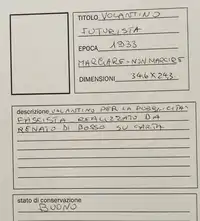 TITOLO VOLANTINO
FUTURISTA
EPOCA 1933
MARCIARE-NON MARCIRE
DIMENSIONI 34,6 X 24,3
descrizione VOLANTINO PER LA PUBBLICITA'
FASCISTA REALIZZATO DA
RENATO DI BOSSO SU CARTA
stato di conservazione
BUONO